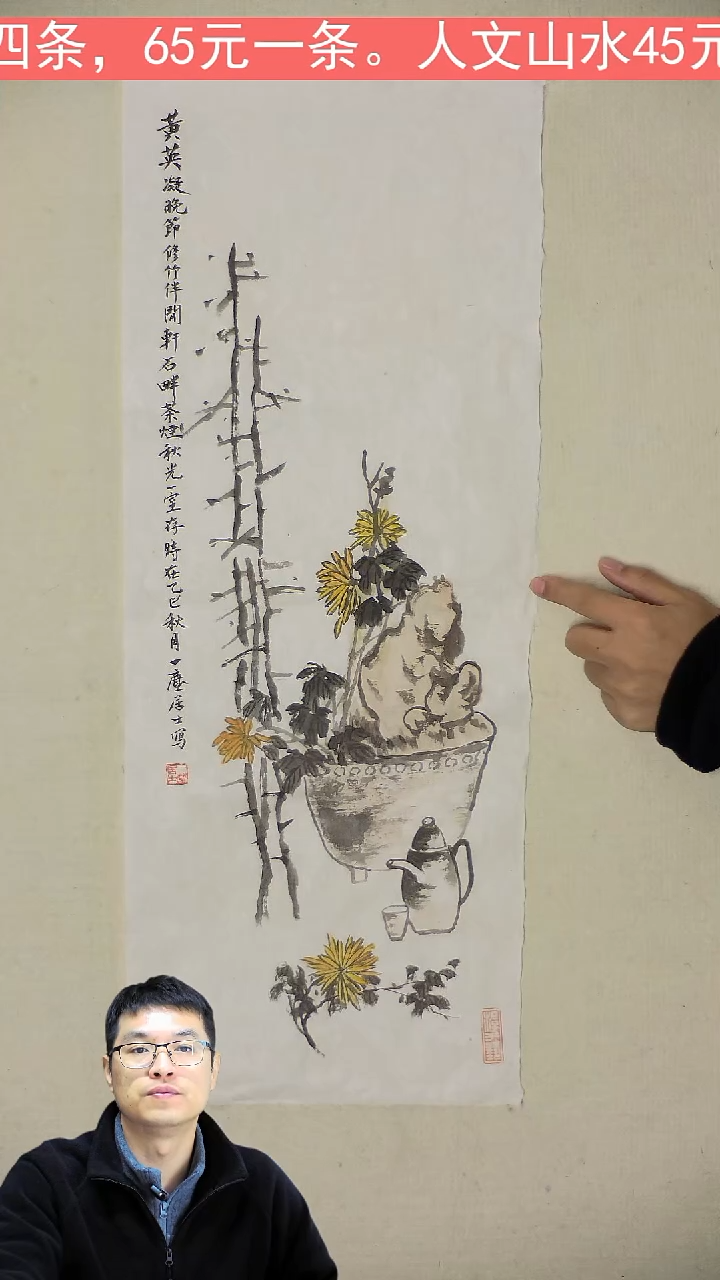 四条，65元一条。人文山水45元
黃英凝晚節修竹伴閒軒石畔茶煙秋光一室存時在乙巳秋月一塵居士寫